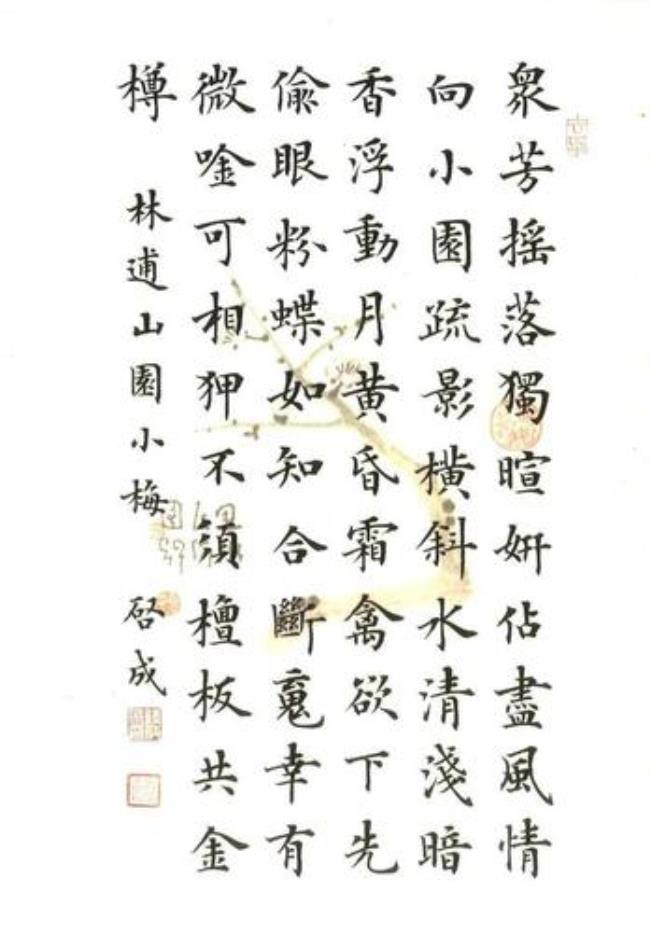 眾芳搖落獨暄妍佔盡風情
向小園疏影橫斜水清淺暗
香浮動月黃昏霜禽欲下先
偷眼粉蝶如知合斷魂幸有
微唫可相狎不須檀板共金
樽 林逋山園小梅 启成